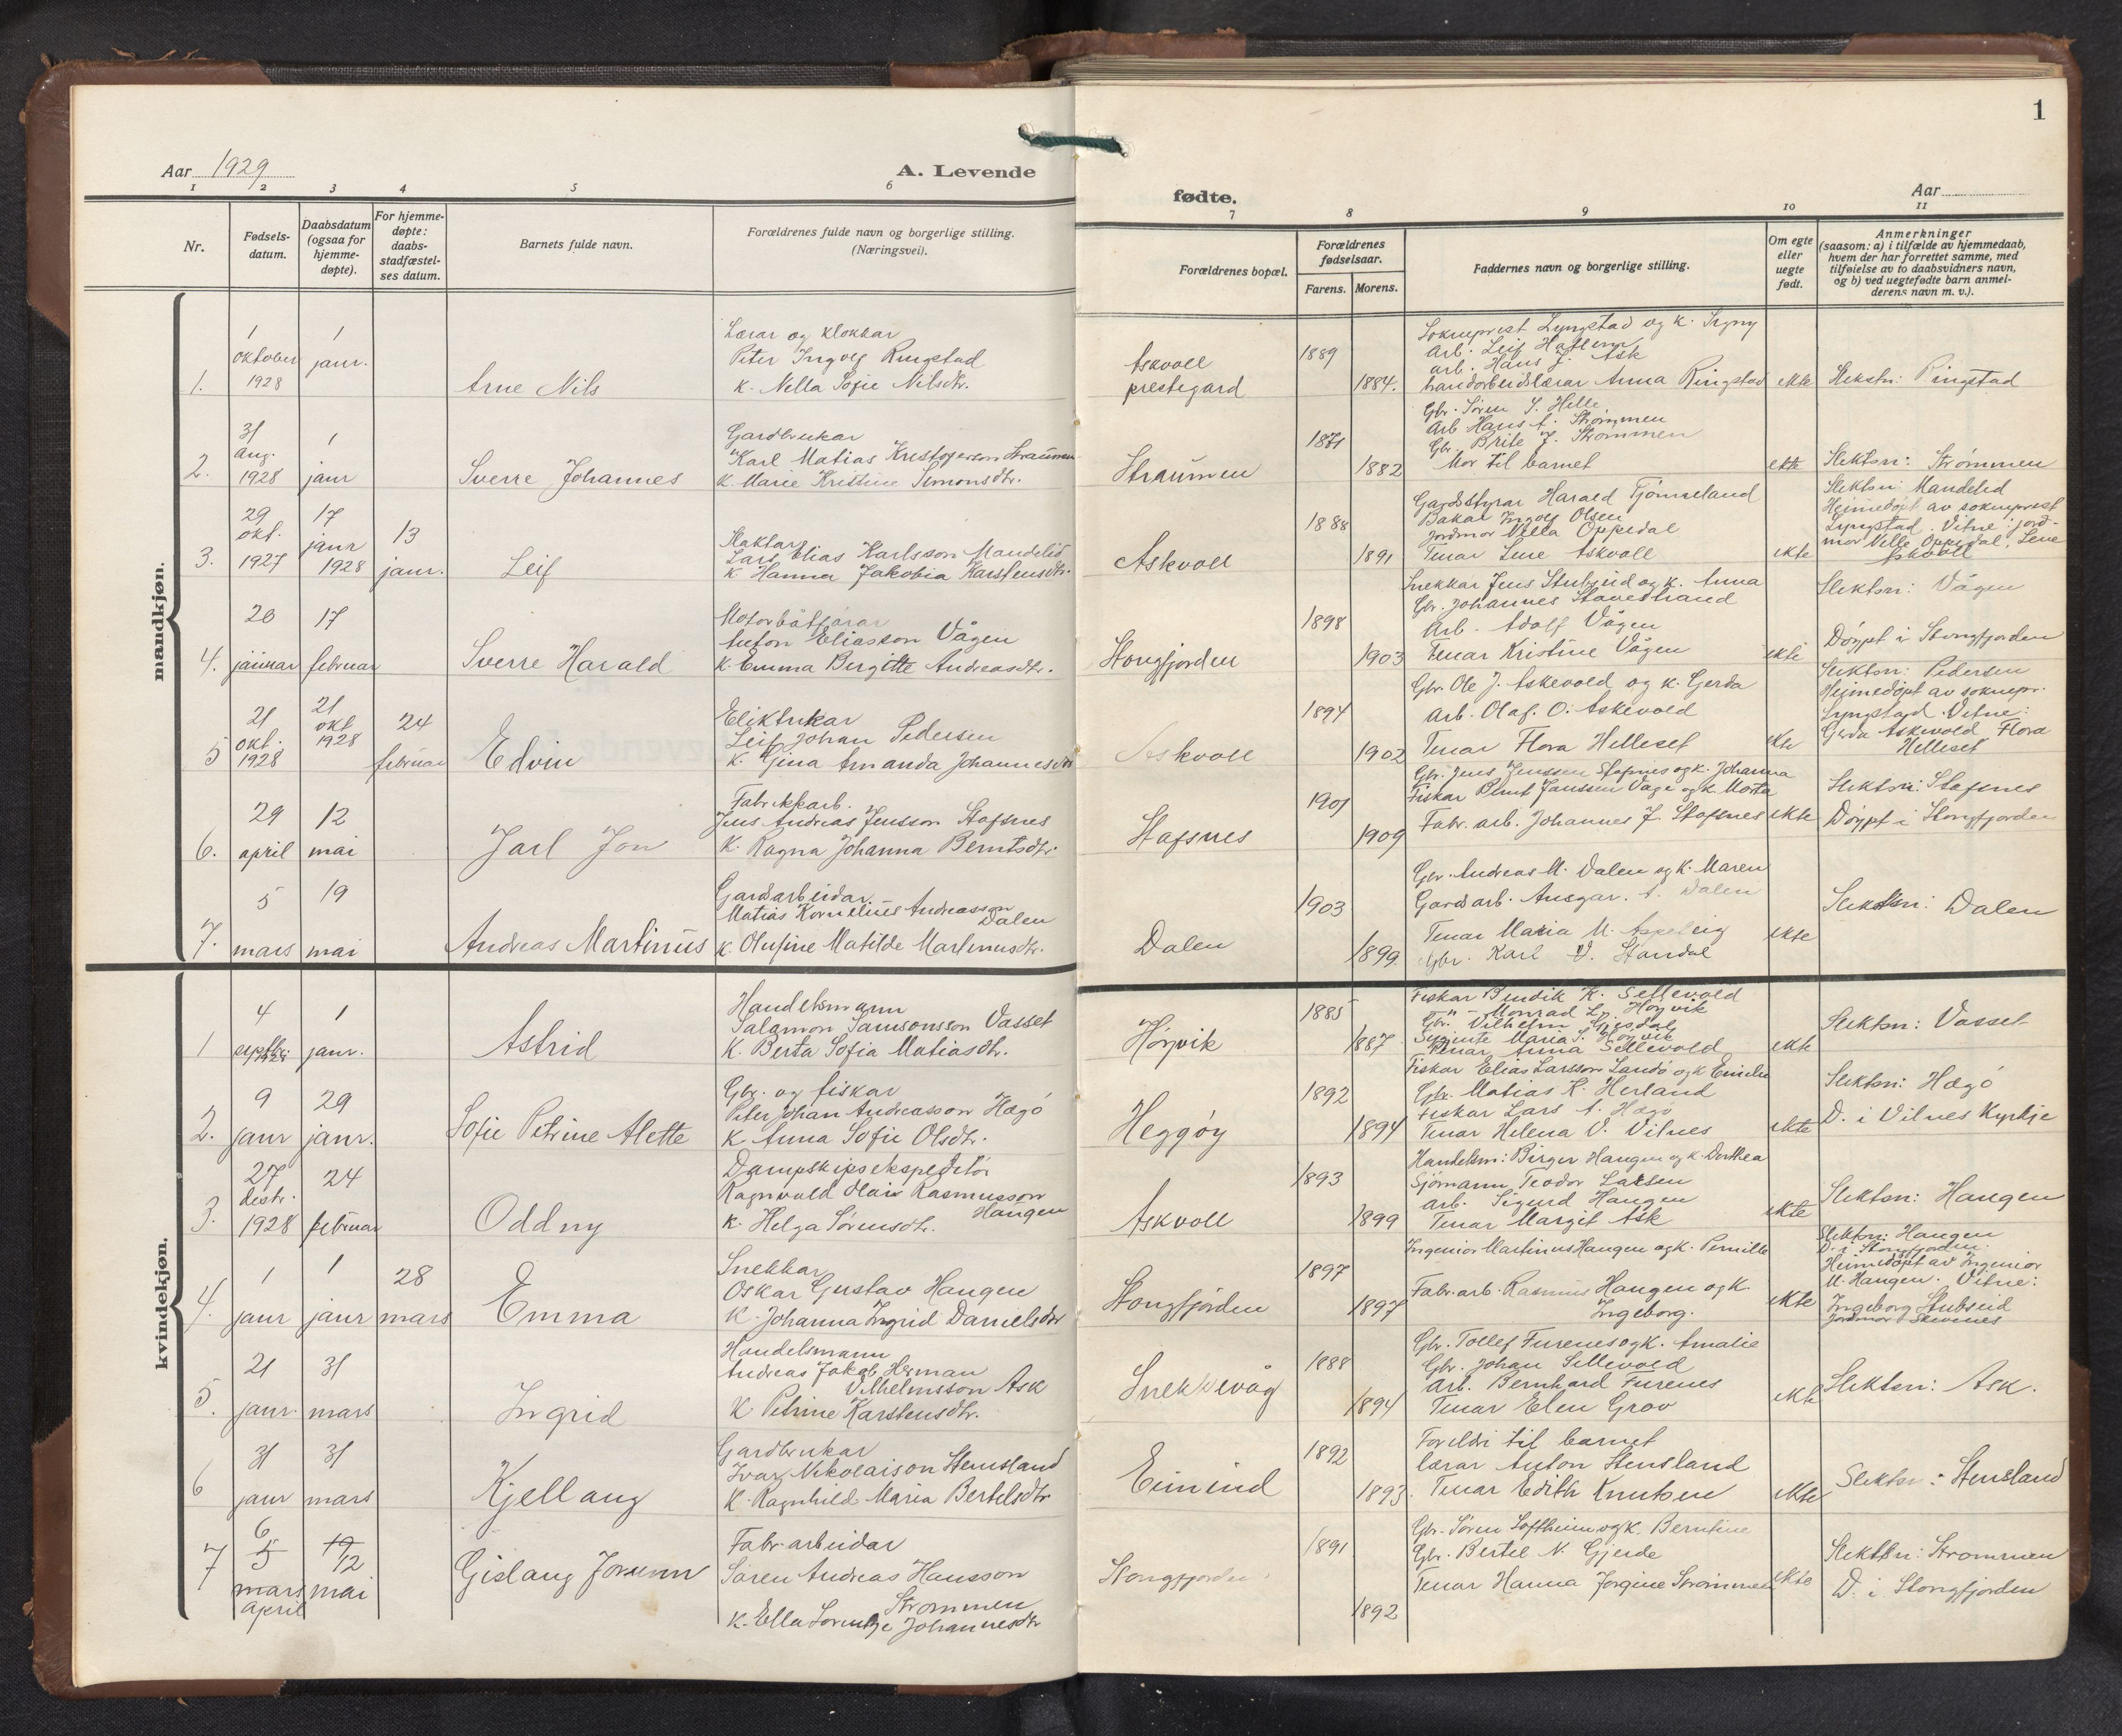 1
Aar 1929
A. Levende
fødte.
Aar
1 2 3 4 5 6 7 8 9 10 11
Nr.
Fødsels-
datum.
Daabsdatum
(ogsaa for
hjemme-
døpte).
For hjemme-
døpte:
daabs-
stadfæstel-
ses datum.
Barnets fulde navn.
Forældrenes fulde navn og borgerlige stilling.
(Næringsvei).
Forældrenes bopæl.
Forældrenes
fødselsaar.
Farens. Morens.
Faddernes navn og borgerlige stilling.
Om egte
eller
uegte
født.
Anmerkninger
(saasom: a) i tilfælde av hjemmedaab,
hvem der har forrettet samme, med
tilføielse av to daabsvidners navn,
og b) ved uegtefødte barn anmel-
derens navn m. v.).
mandkjøn.
1.
1
oktober
1928
1
jaur.
Arne Nils
Lærar og klokkar
Peter Ingolf Ringstad
k. Nella Sofie Nilsdtr.
Askvoll
prestegard
1889
1884.
Sokneprest Lyngstad og k. Signy
Arb. Leif Hatlem
arb. Hans J. Ask
handarbeidslærar Anna Ringstad
ekte
Slektsn: Ringstad
2.
31
Aug.
1928
1
jaur
Sverre Johannes
Gardbrukar
Karl Matias Kristoferson Straumen
k. Marie Kristine Simonsdtr.
Straumen
1871
1882
Gbr. Søren S. Helle
Arb Hans A. Strømmen
Gbr Brite J. Strømmen
Mor til barnet
ekte
Slektsn: Strømmen
3.
29
okt.
1927
17
jaur
1928
13
jaur.
Leif
Slaktar
Lars Elias Karlsson Mandelid
k Hanna Jakobia Karstensdtr.
Askvoll
1888
1891
Gardstyrar Harald Tjønneland
Bakar Ingolf Olsen
Jordmor Vella Oppedal
Tenar Lene Askvoll
ekte
Slektsn: Mandelid
Heimedøpt av sokneprest
Lyngstad. Vitne: jord-
mor Velle Oppedal, Lene
Askvoll
4.
20
januar
17
februar
Sverre Harald
Motorbåtførar
Anton Eliasson Vågen
k. Emma Birgitte Andreasdtr.
Stongfjorden
1898
1903
Snekkar Jens Stubseid og k. Anna
Gbr. Johannes Stavestrand
Arb. Adolf Vågen
Tenar Kristine Vågen
ekte
Slektsn: Vågen
Døypt i Stongfjorden
5
21
okt.
1928
21
okt
1928
24
februar
Edvin
Elektrikar
Leif Johan Pedersen
k. Gina Amanda Johannesdtr
Askvoll
1894
1902
Gbr. Ole J. Askevold og k. Gerda
Arb. Olaf. O. Askevold
Tenar Flora Helleset
ekte
Slektsn: Pedersen
Heimedøpt av soknepr.
Lyngstad. Vitne:
Gerda Askevold, Flora
Helleset
6.
29
april
12
mai
Jarl Jon
Fabrikkarb.
Jens Andreas Jensson Stafsnes
k. Ragna Johanna Berntsdtr.
Stafsnes
1901
1909
Gbr. Jens Jenssen Stafsnes og k. Johanna
Fiskar Bernt Janssen Våge og k. Marta
Fabr. arb. Johannes J. Stafsnes
ekte
Slektsn: Stafsnes
Døypt i Stongfjorden
7.
5
mars
19
mai
Andreas Martinus
Gardsarbeidar
Matias Kornelius Andreasson
Dalen
k. Olufine Matilde Martinusdtr.
Dalen
1903
1899.
Gbr. Andreas M. Dalen og k. Maren
Gardsarb. Ansgar. A. Dalen
Tenar Maria M. Aspeberg
Gbr. Karl V. Standal
ekte
Slektsn: Dalen
kvindekjøn.
1
4
septbr.
1928
1
jaur.
Astrid
Handelsmann
Salamon Samsonsson Vasset
k. Berta Sofia Matiasdtr.
Høyvik
1885
1887
Fiskar Bendik K. Sellevold
" Monrad L. Høyvik
Gbr. Vilhelm Gjesdal
Serjinte Maria S. Høyvik
Tenar Anna Sellevold
ekte
Slektsn: Vasset
2.
9
jaur
29
jaur.
Sofie Petrine Alette
Gbr. og fiskar
Peter Johan Andreasson Hægø
k Anna Sofie Olsdtr.
Heggøy
1892
1894
Fiskar Elias Larsson Landø og k Emilie
Gbr. Matias K. Herland
Fiskar Lars A. Hægø
Tenar Helena V. Vilnes
ekte
Slektsn: Hægø
D. i Vilnes Kyrkje
3.
27
desbr.
1928
24
februar
Oddny
Dampskipsekspeditør
Ragnvald Olair Rasmusson
Haugen
k. Helga Sørensdtr.
Askvoll
1893
1899
Handelsm: Birger Haugen og k. Dorthea
Sjømann Teodor Larsen
arb. Sigurd Haugen
Tenar Margit Ask
ekte
Slektsn: Haugen
4.
1
jaur
1
jaur
28
mars
Emma
Snekkar
Oskar Gustav Haugen
k. Johanna Ingrid Danielsdtr
Stongfjorden
1897
1897
Ingeniør Martinus Haugen og k. Pernille
Fabr. arb. Rasmus Haugen og k.
Ingeborg.
ekte
Slektsn: Haugen
D. i Stongfjorden
Heimedøpt av Ingeniør
M. Haugen. Vitne:
Ingeborg Stubseid
jordmor Skivenes
5.
21
jaur.
31
mars
Ingrid
Handelsmann
Andreas Jakob Herman
Vilhelmsson Ask
k Petrine Karstensdtr.
Snekkevåg
1888
1894
Gbr. Tollef Furenes og k. Amalie
Gbr. Johan Sellevold
Arb. Bernhard Furenes
Tenar Elen Grov
ekte
Slektsn: Ask.
6
31
jaur
31
mars
Kjellaug
Gardbrukar
Ivar Nikolaison Stensland
k. Ragnhild Maria Bertelsdtr
Eimind
1892
1893.
Foreldri til barnet
lærar Anton Stensland
Tenar Edith Knutsen
ekte
Slektsn: Stensland
7
6
5
mars
april
19
12
mai
Gislaug Jorunn
Fabr. arbeidar
Søren Andreas Hansson
Strømmen
k. Ella Sorentze Johannesdtr
Stongfjorden
1891
1892
Gbr. Søren Softheim og k. Berntine
Gbr. Bertel N. Gjerde
Tenar Hanna Jørgine Strømmen
ekte
Slektsn: Strømmen
D. i Stongfjorden